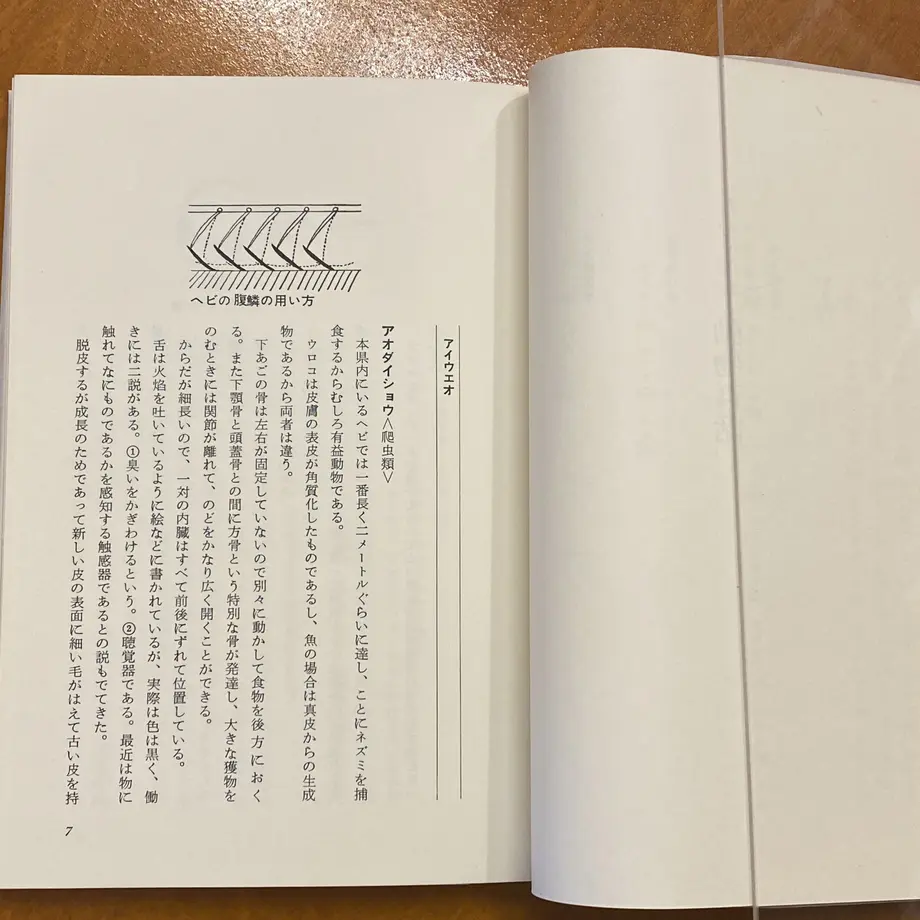 ヘビの腹鱗の用い方
アイウエオ
アオダイショウ<爬虫類>
本県内にいるヘビでは一番長く二メートルぐらいに達し、ことにネズミを捕
食するからむしろ有益動物である。
ウロコは皮膚の表皮が角質化したものであるし、魚の場合は真皮からの生成
物であるから両者は違う。
下あごの骨は左右が固定していないので別々に動かして食物を後方におく
る。また下顎骨と頭蓋骨との間に方骨という特別な骨が発達し、大きな獲物を
のむときには関節が離れて、のどをかなり広く開くことができる。
からだが細長いので、一対の内臓はすべて前後にずれて位置している。
舌は火焰を吐いているように絵などに書かれているが、実際は色は黒く、働
きには二説がある。①臭いをかぎわけるという。②聴覚器である。最近は物に
触れてなにものであるかを感知する触感器であるとの説もでてきた。
脱皮するが成長のためであって新しい皮の表面に細い毛がはえて古い皮を持
7